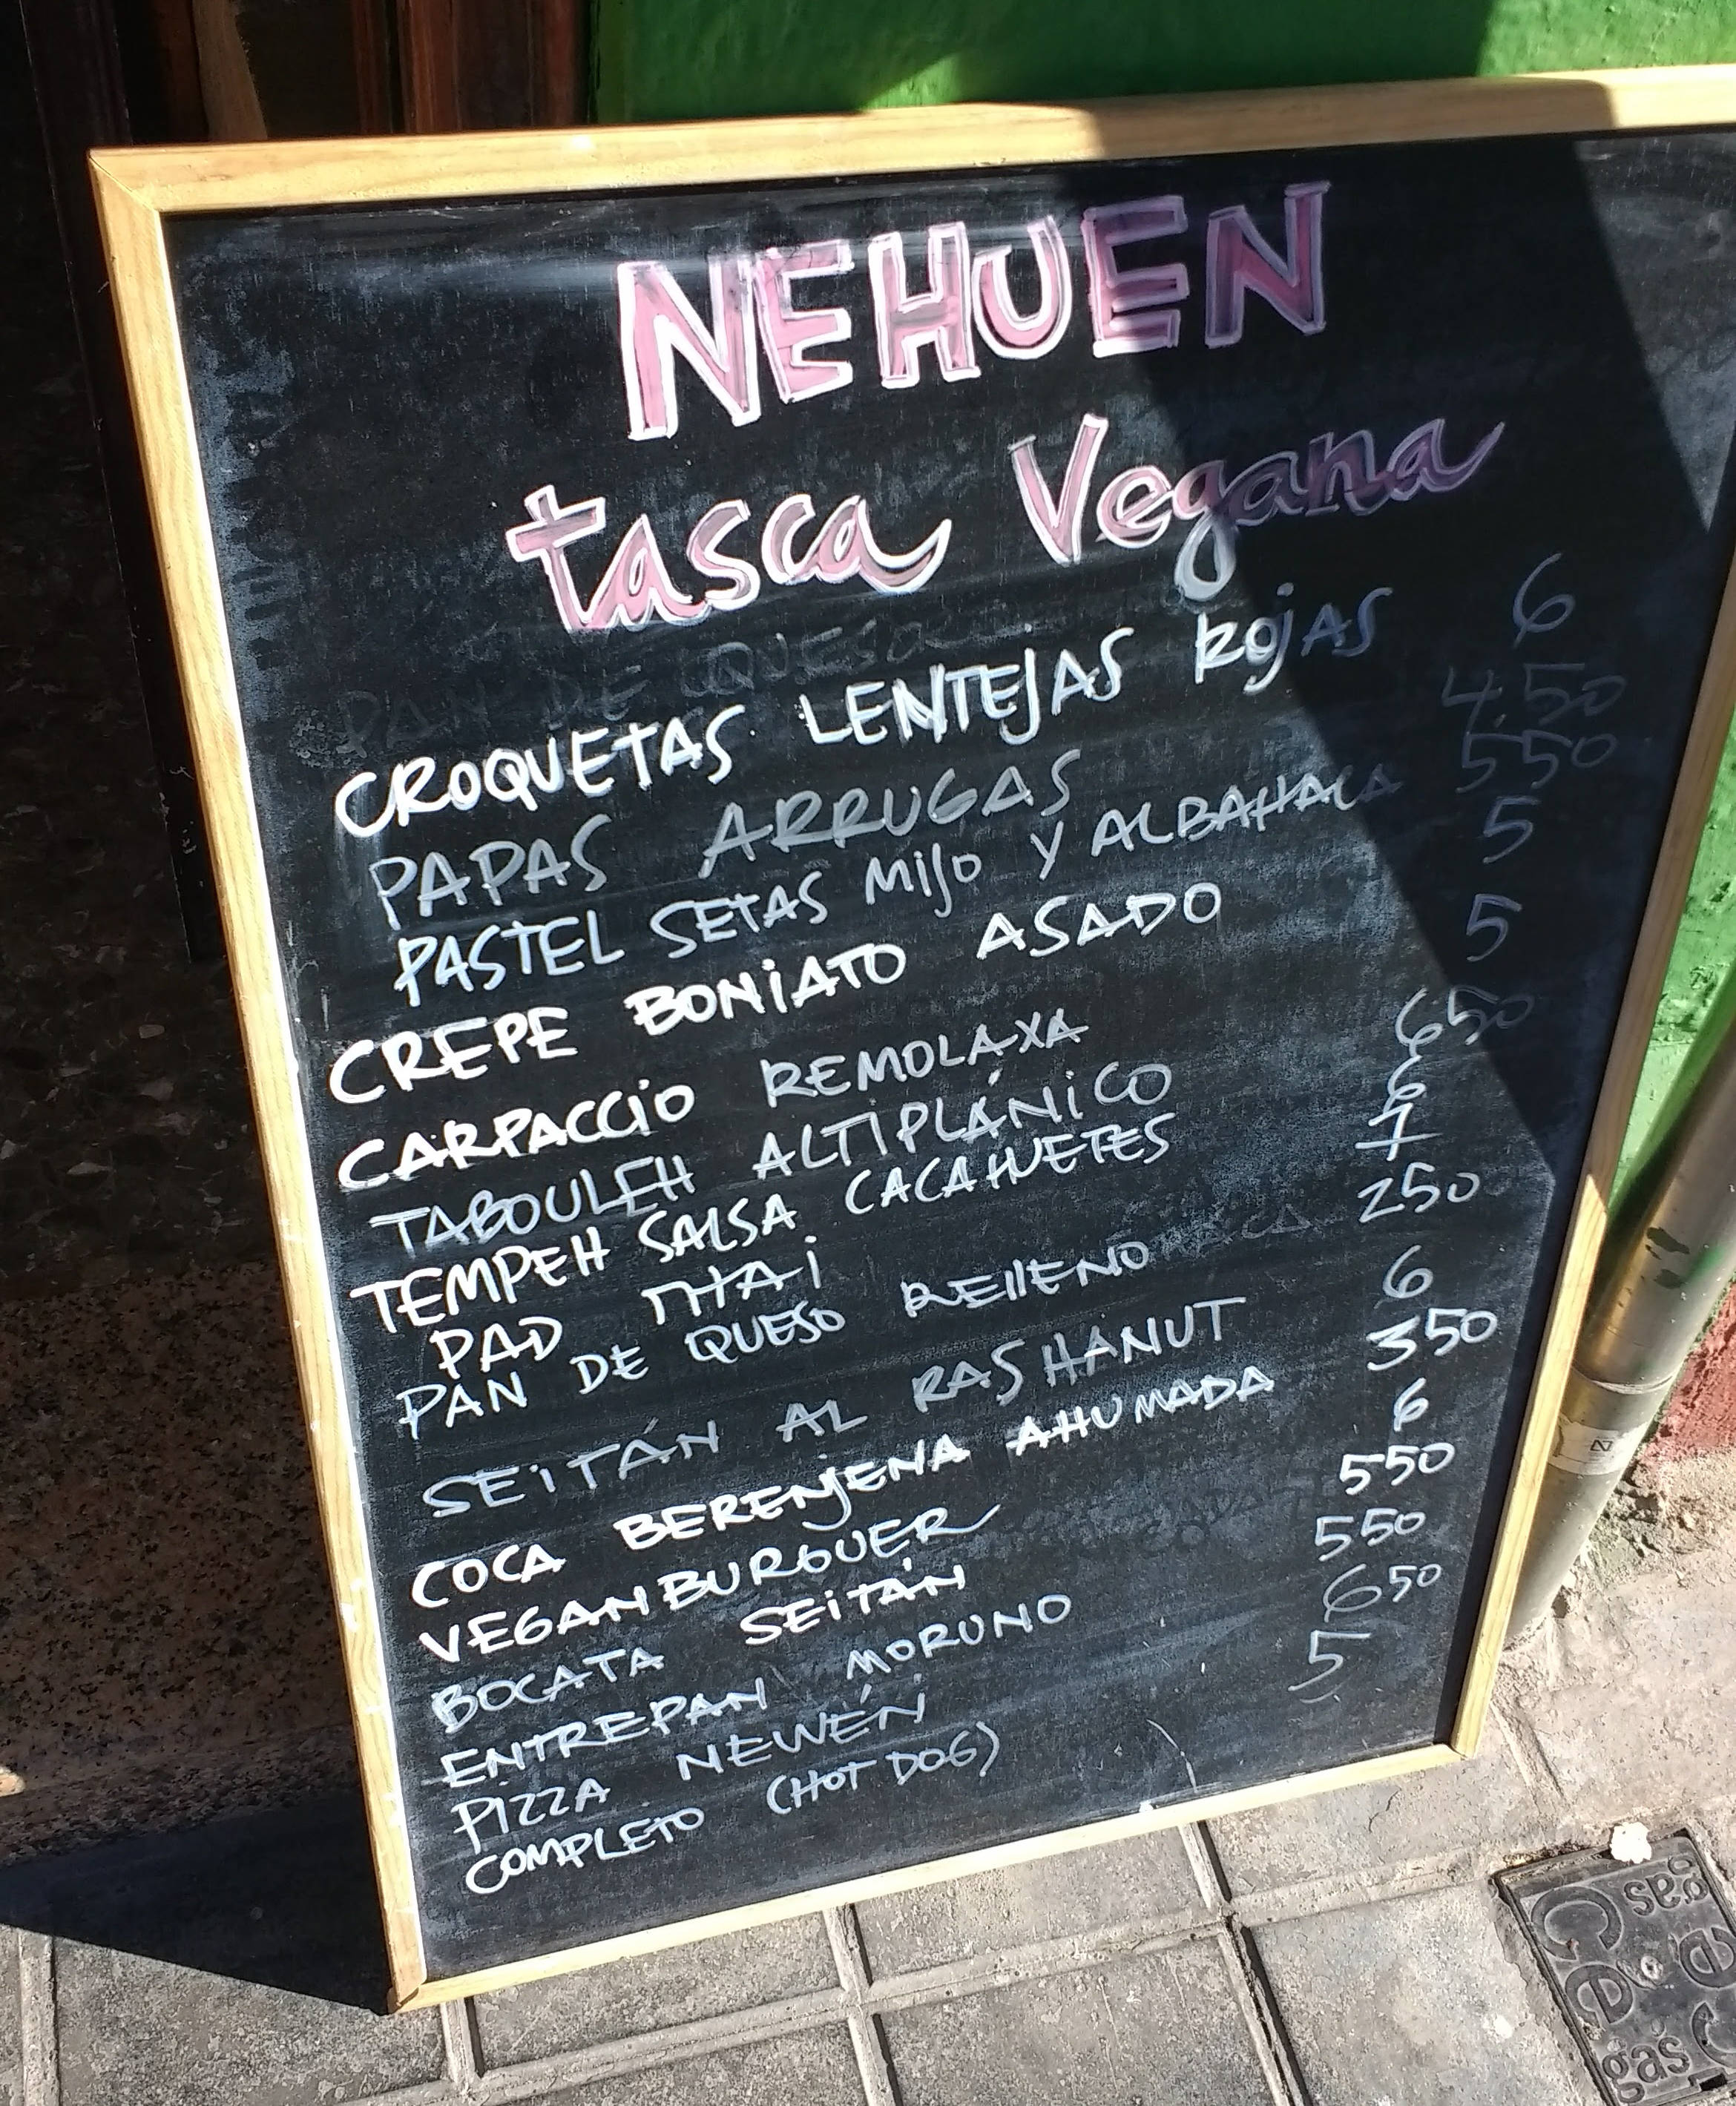 NEHUEN
tasca Vegana
CROQUETAS LENTEJAS ROJAS 6
PAPAS ARRUGAS 4.50
PASTEL SETAS MIJO Y ALBAHACA 550
CREPE BONIATO ASADO 5
CARPACCIO REMOLAXA 5
TABOULEH ALTIPLÁNICO 650
TEMPEH SALSA CACAHUETES 6
PAD THAI 7
PAN DE QUESO RELLENO 250
SEITÁN AL RAS HANUT 6
COCA BERENJENA AHUMADA 350
VEGANBURGUER 6
BOCATA SEITÁN 550
ENTREPAN MORUNO 550
PIZZA NEWÉN 650
COMPLETO (HOT DOG) 5
gas
gas